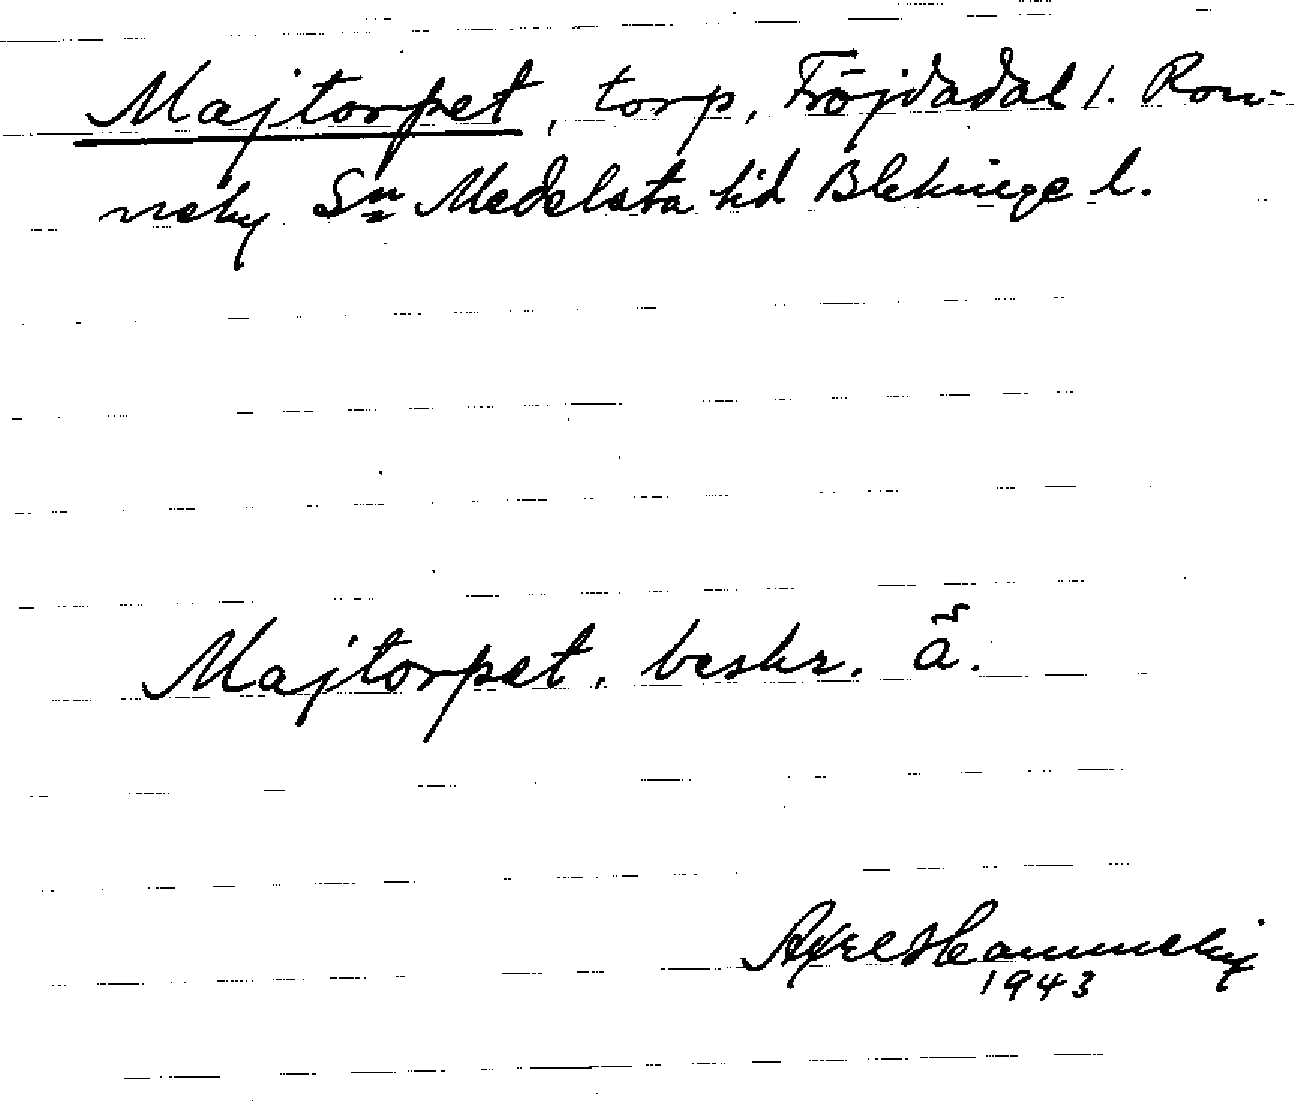 Majtorpet, torp, Fröjdadal 1. Ron-
neby Sn Medelsta hd Blekinge l.
Majtorpet, beskr. å.
Axel
1943